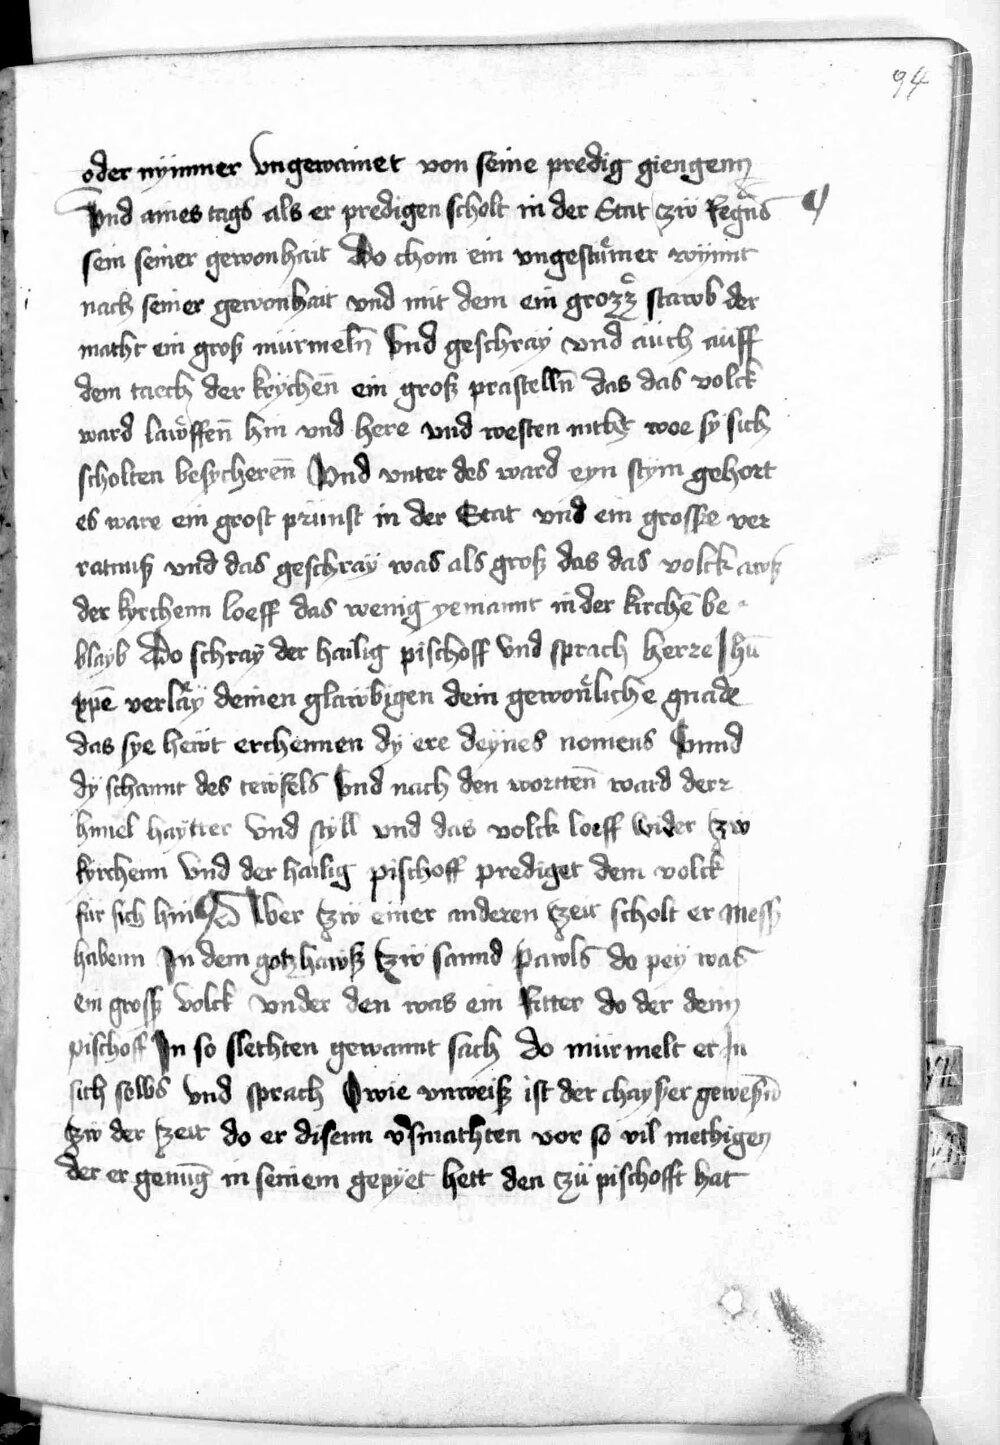 94
oder nymmer vngewainet von seine predig giengenn
Vnd aines tags als er predigen scholt in der Stat zw Regn̄s
sein seiner gewonhait Do chom ein vngestuͤmer wynnt
nach seiner gewonhait vnd mit dem ein grozz stawb der
macht ein groß murmeln̄ Vnd geschray vnd auch auff
dem tach der krychen̄ ein groß prastelln̄ das das volck
ward lawffen̄ hin vnd here vnd westen nicht woe sy sich
scholten besycheren̄ Vnd vnter des ward eyn stym gehort
es ware ein grost prunst in der Stat vnd ein grosse ver
ratnuß vnd das geschray was als groß das das volck awß
der kyrchenn loeff das wenig yemannt in der kirchē be
blayb Do schray der hailig pischoff vnd sprach herre Jhū
xpē verlay deinen glawbigen dein gewonliche gnade
das sye hewt erchennen dy ere deynes nomens Vnnd
dy schannt des tewfels Vnd nach den wortten̄ ward derr
himel haytter Vnd styll vnd das volck loeff wider zw
kyrchenn Vnd der hailig pischoff prediget dem volck
fur sich hin Aber tzw einer anderen tzeit scholt er mess
habenn In dem gotzhawß tzw sannd pawls do pey was
ein gross volck vnder den was ein Ritter do der denn
pischoff In so slechten gewannt sach do murmelt er In
sich selbs vnd sprach O wie vnweiß ist der chayser gewesn̄
tzw der tzeit do er disenn v̄smachten vor so vil mechigen
der er genug in seinem gepyet hett den zu pischofft hat